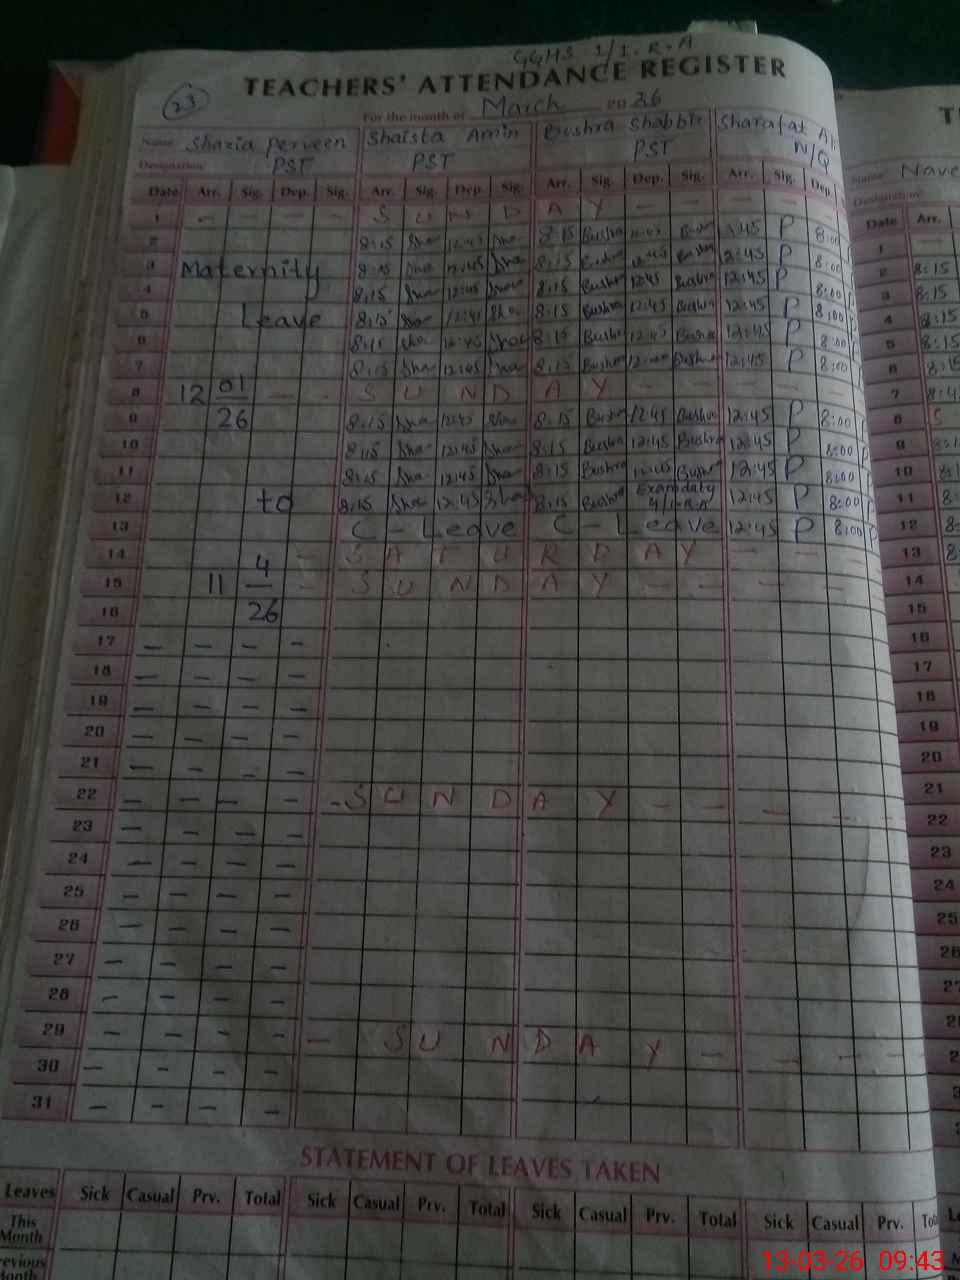 GGHS 1/1.R.A
TEACHERS' ATTENDANCE REGISTER
23
For the month of March 2026
Name Shazia Perveen Shaista Amin Bushra Shabbir Sharafat Ali
Designation PST PST PST N/Q
Date Arr. Sig. Dep. Sig. Arr. Sig. Dep. Sig. Arr. Sig. Dep. Sig. Arr. Sig. Dep.
1 – – – – S U N D A Y – – – –
2 8:15 Sha 12:45 Sha 8:15 Bushra 12:45 Bushra 12:45 P 8:00
3 Maternity 8:15 Sha 12:45 Sha 8:15 Bushra 12:45 Bushra 12:45 P 8:00
4 8:15 Sha 12:45 Sha 8:15 Bushra 12:45 Bushra 12:45 P 8:00
5 Leave 8:15 Sha 12:45 Sha 8:15 Bushra 12:45 Bushra 12:45 P 8:00
6 8:15 Sha 12:45 Sha 8:15 Bushra 12:45 Bushra 12:45 P 8:00
7 8:15 Sha 12:45 Sha 8:15 Bushra Bushra 12:45 P 8:00
8 12 01 – – S U N D A Y – – – – –
9 26 8:15 Sha 12:45 Sha 8:15 Bushra 12:45 Bushra 12:45 P 8:00
10 8:15 Sha 12:45 Sha 8:15 Bushra 12:45 Bushra 12:45 P 8:00
11 8:15 Sha 12:45 Sha 8:15 Bushra 12:45 Bushra 12:45 P 8:00
12 to 8:15 Sha 12:45 Sha 8:15 Bushra Exam duty 12:45 P 8:00
13 C - Leave C - Leave 12:45 P 8:00
14 4 – S A T U R D A Y – – –
15 11 – – S U N D A Y – – – –
16 26
17 – – – –
18 – – – –
19 – – – –
20 – – – –
21 – – – –
22 – – – – – S U N D A Y – – – – –
23 – – – –
24 – – – –
25 – – – –
26 – – – –
27 – – – –
28 – – – –
29 – – – – – S U N D A Y – – – –
30 – – – –
31 – – – –
STATEMENT OF LEAVES TAKEN
Leaves Sick Casual Prv. Total Sick Casual Prv. Total Sick Casual Prv. Total Sick Casual Prv.
This
Month
Name Nave
Designation
Date Arr.
1
2 8:15
3 8:15
4 8:15
5 8:15
6
7
8
9
10
11
12
13
14
15
16
17
18
19
20
21
22
23
24
25
13-03-26 09:43